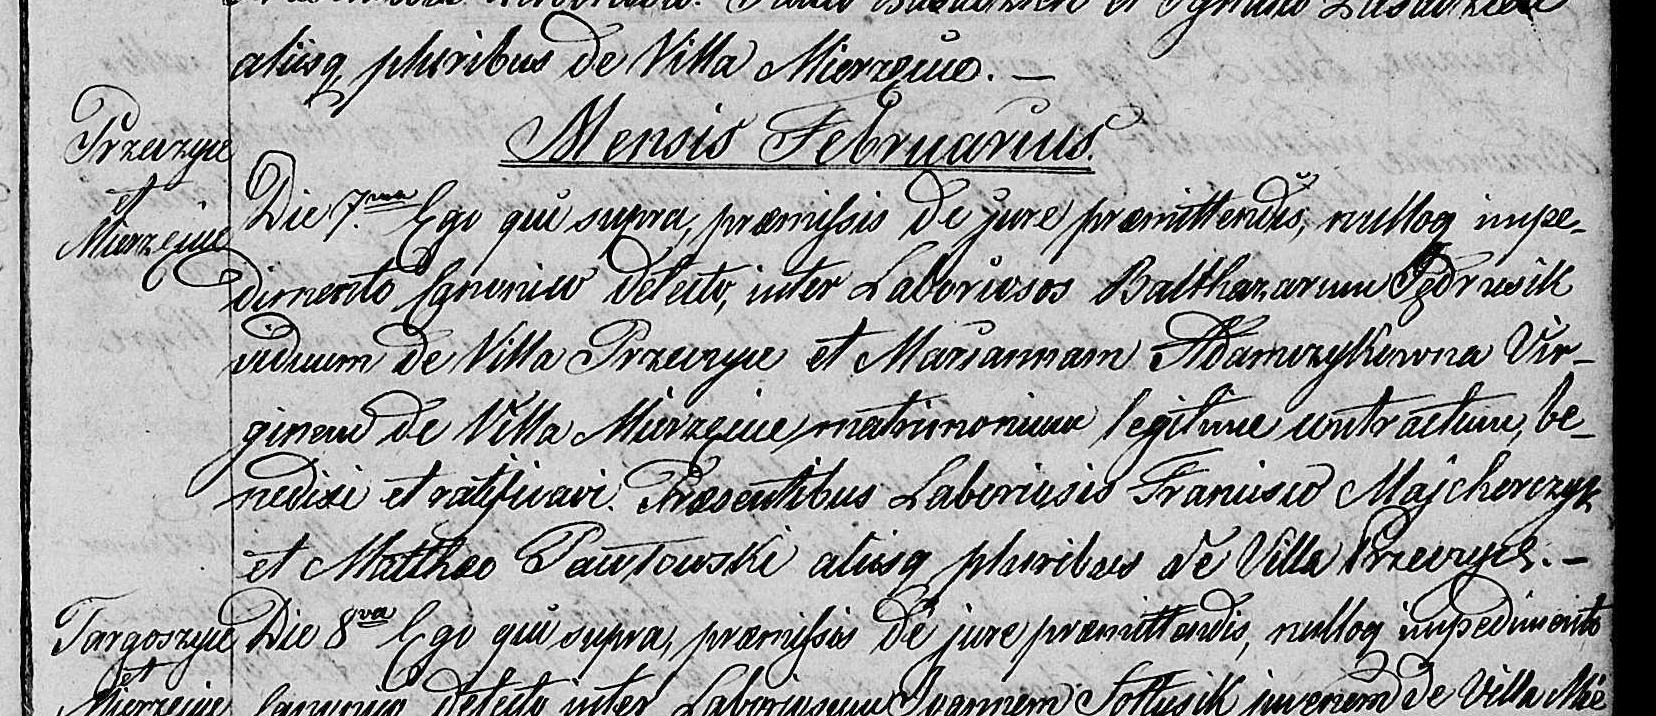 aliisq pluribus de Villa Mierzęcice. —
Mensis Februarius.
Przeczyce
et
Mierzęcice
Die 7.ma Ego qui supra, præmissis de jure præmittendis, nulloq impe-
dimento Canonico detecto, inter Laboriosos Balthazarum Pędrusik
viduum de Villa Przeczyce et Mariannam Adamczykowna Vir-
ginem de Villa Mierzęcice, matrimonium legitime contractum, be-
nedixi et ratificavi. Præsentibus Laboriosis Francisco Majcherczyk
et Mattheo Pawłowski aliisq pluribus de Villa Przeczyce. —
Targoszyce
et
Mierzęcice
Die 8va Ego qui supra, præmissis de jure præmittendis, nulloq impedimento
Canonico detecto inter Laboriosum Joannem Sołtysik juvenem de Villa Mie